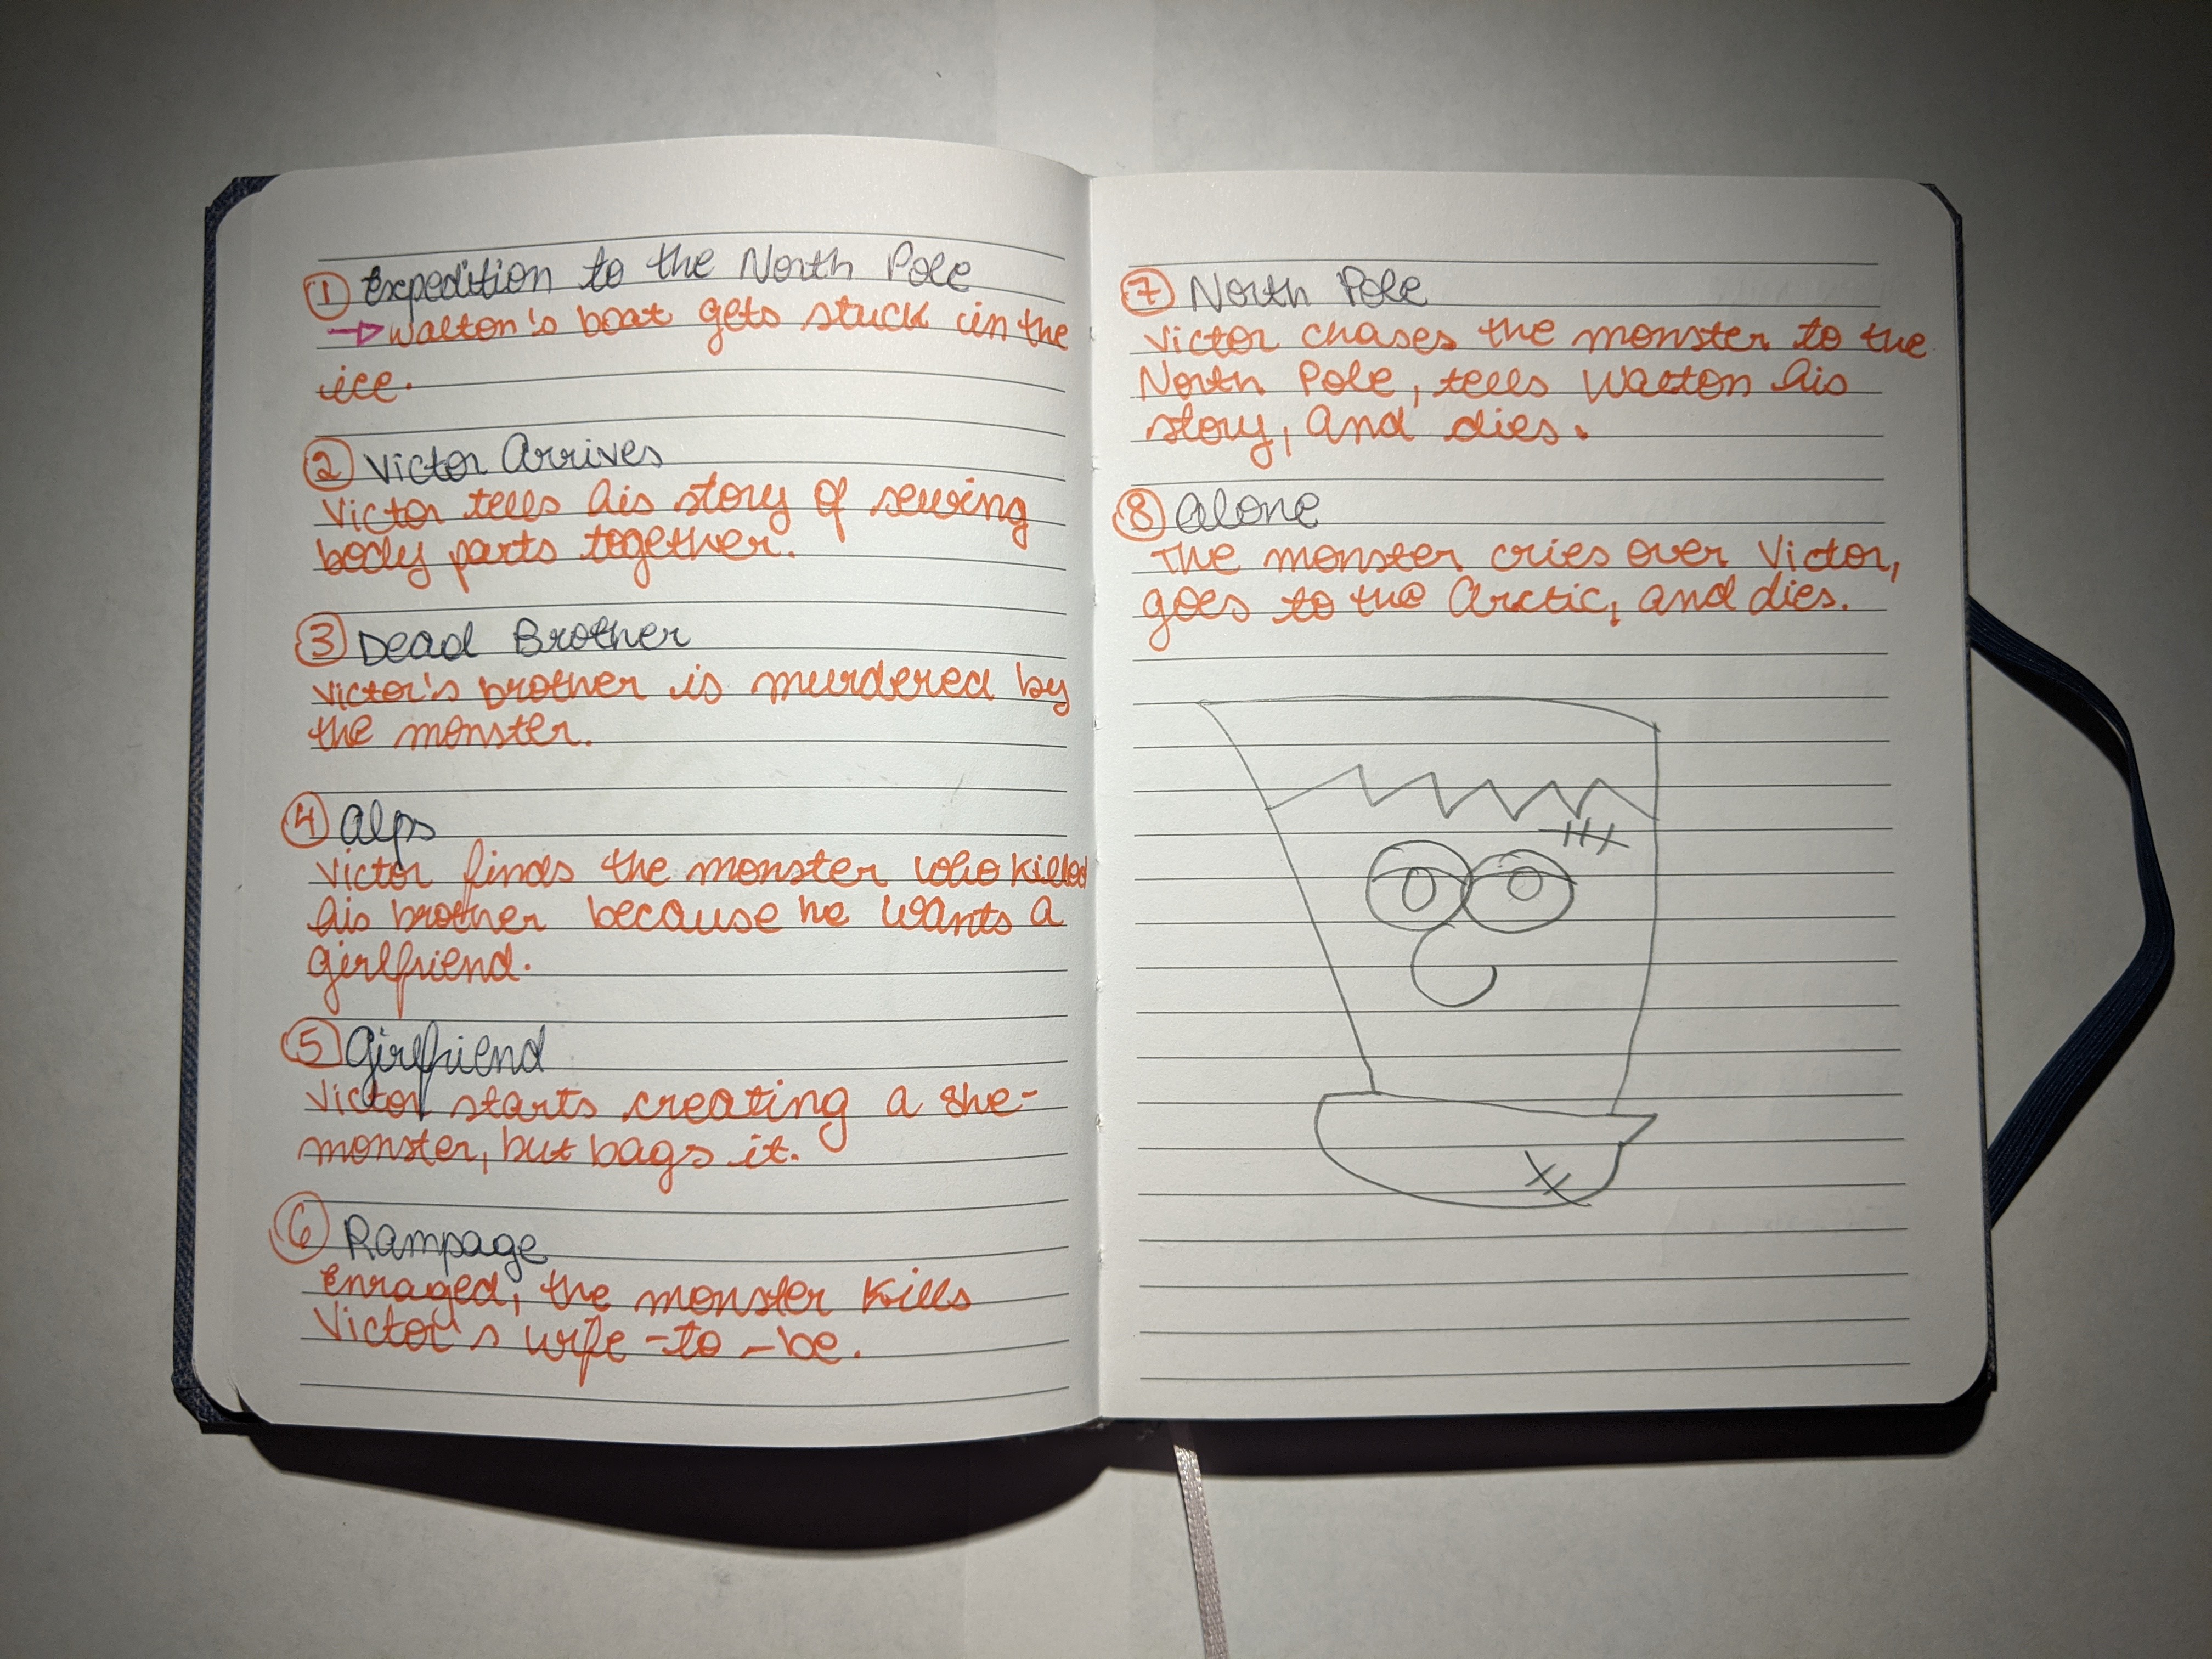 ① Expedition to the North Pole
→ Walton's boat gets stuck in the
ice.
② Victor Arrives
Victor tells his story of sewing
body parts together.
③ Dead Brother
Victor's brother is murdered by
the monster.
④ Alps
Victor finds the monster who killed
his brother because he wants a
girlfriend.
⑤ Girlfriend
Victor starts creating a she-
monster, but bags it.
⑥ Rampage
Enraged, the monster kills
Victor's wife-to-be.
⑦ North Pole
Victor chases the monster to the
North Pole, tells Walton his
story, and dies.
⑧ Alone
The monster cries over Victor,
goes to the Arctic, and dies.